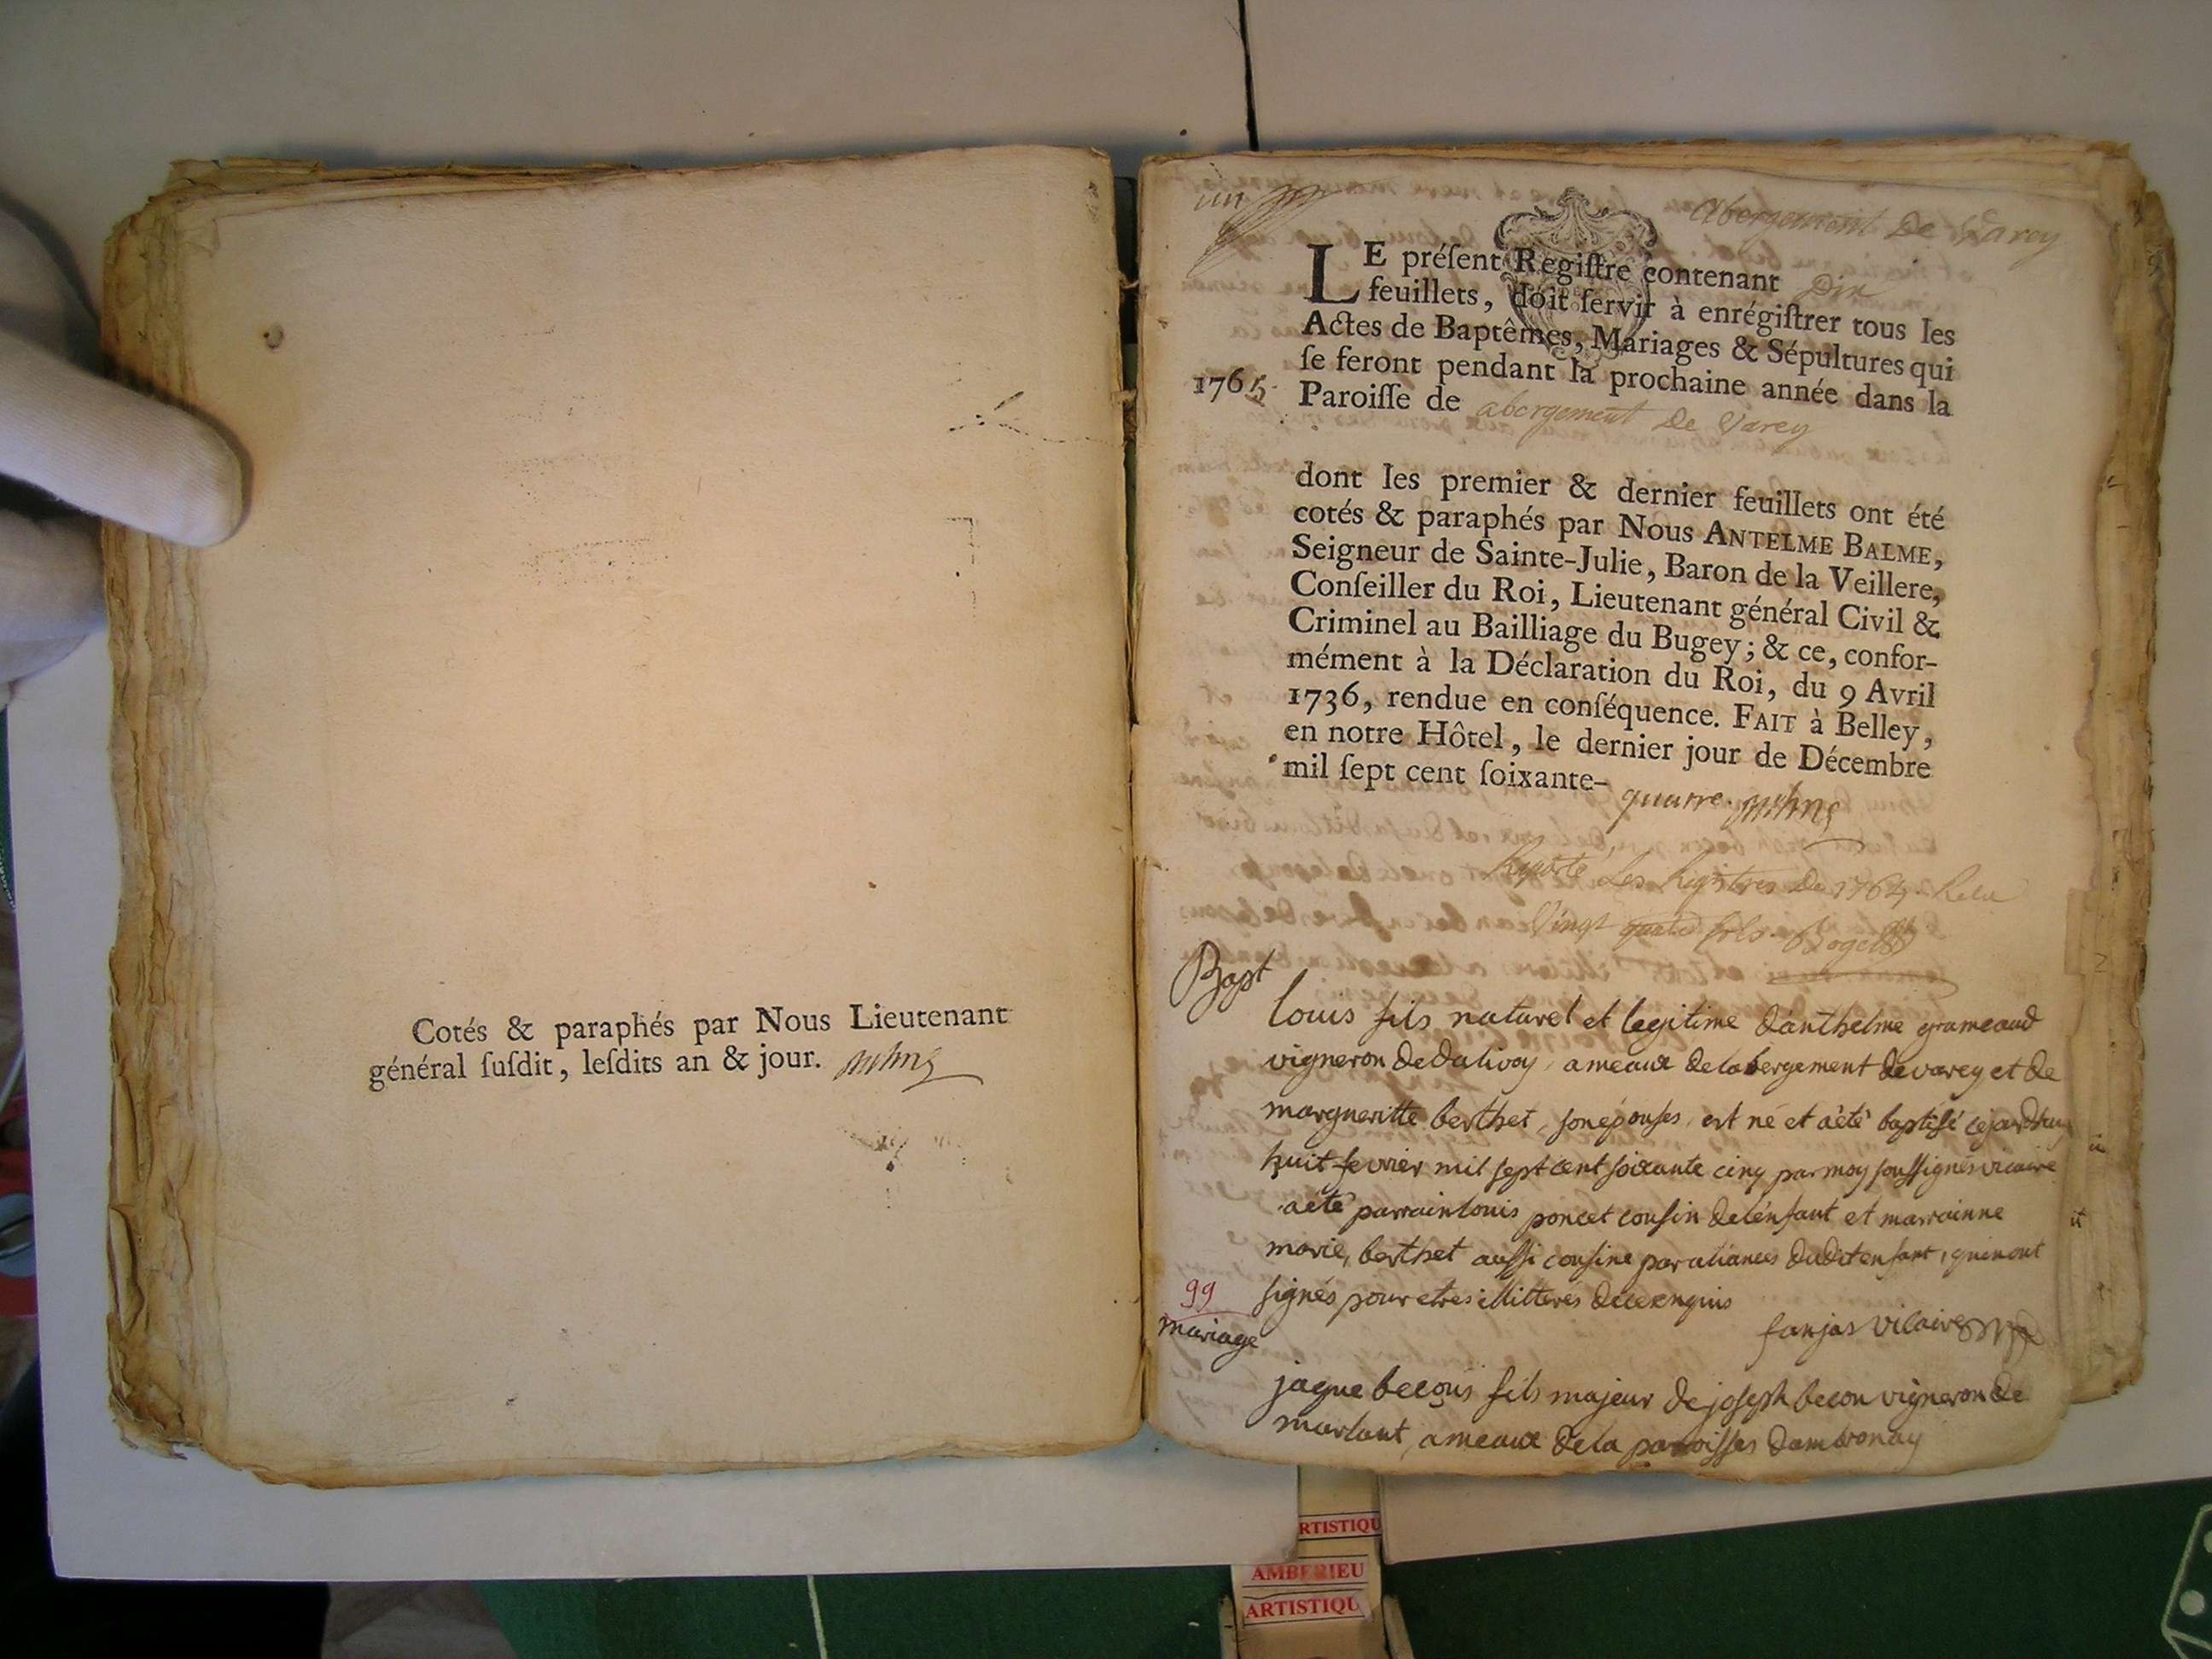 Cotés & paraphés par Nous Lieutenant
général ſuſdit, leſdits an & jour.
un
abergement De Varey
LE préſent Regiſtre contenant Dix
feuillets, doit ſervir à enrégiſtrer tous les
Actes de Baptêmes, Mariages & Sépultures qui
ſe feront pendant la prochaine année dans la
1765. Paroiſſe de abergement De Varey
dont les premier & dernier feuillets ont été
cotés & paraphés par Nous ANTELME BALME,
Seigneur de Sainte-Julie, Baron de la Veillere,
Conſeiller du Roi, Lieutenant général Civil &
Criminel au Bailliage du Bugey; & ce, confor-
mément à la Déclaration du Roi, du 9 Avril
1736, rendue en conſéquence. FAIT à Belley,
en notre Hôtel, le dernier jour de Décembre
mil ſept cent ſoixante- quatre.
Les Registres De 1764.
Vingt
Bapt
louis fils naturel et legitime danthelme grameaud
vigneron de dalivoy, ameaux de labergement de varey et de
margueritte berthet, son épouses, est né et a été baptisé cejourdhuy
huit fevrier mil sept cent soixante cinq par moy soussignés vicaire
a été parrain louis poncet cousin de lénfant et marrainne
marie, berthet aussi cousine par aliances dudit enfant, qui nont
signés pour etres illitterés de ce enquis
fanjas vicaire
99
mariage
jaque beçons fils majeur de joseph becon vigneron de
marlant, ameaux de la paroisses dambronay
ARTISTIQU
AMBERIEU
ARTISTIQU